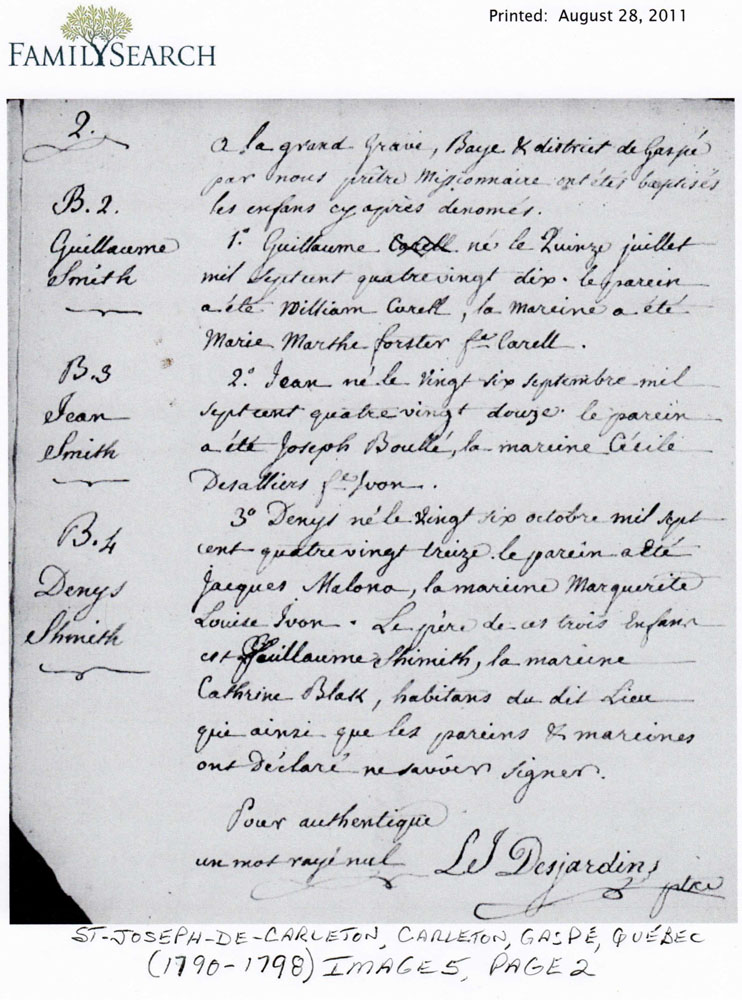 Printed: August 28, 2011
FAMILYSEARCH
2.
a la grand Grave, Baye & district de Gaspé
par nous prêtre Missionnaire ont étés baptisés
les enfans cy après denomés.
B. 2.
Guillaume
Smith
1.° Guillaume Carell né le Quinze juillet
mil sept cent quatre vingt dix. le parein
a été William Carell, la mareine a été
Marie Marthe forster fe Carell.
B. 3
Jean
Smith
2.° Jean né le vingt six septembre mil
sept cent quatre vingt douze. le parein
a été Joseph Boullé, la mareine Cécile
Desalliers fe Ivon.
B. 4
Denys
Shmith
3° Denys né le vingt six octobre mil sept
cent quatre vingt treize. le parein a été
Jacques Malona, la mareine Marguerite
Louise Ivon. Le père de ces trois Enfans
est Guillaume Shimith, la mareine
Cathrine Blak, habitans du dit Lieu
qui ainsi que les pareins & mareines
ont déclaré ne savoir signer.
Pour authentique
un mot rayé nul LJ Desjardins
ptre
ST-JOSEPH-DE-CARLETON, CARLETON, GASPÉ, QUÉBEC
(1790-1798) IMAGE 5, PAGE 2